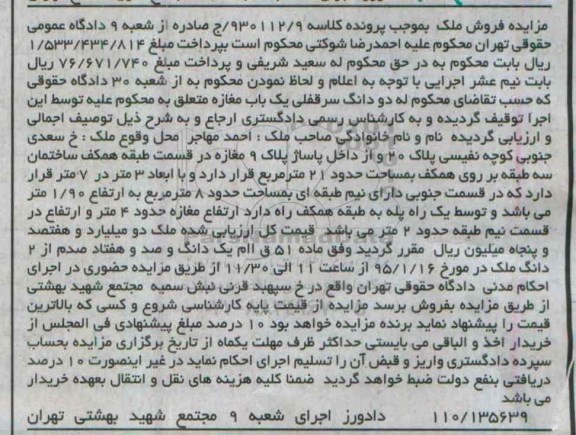 مزایده فروش ملک بموجب پرونده کلاسه ۹۳۰۱۱۲/۹/ج صادره از شعبه ۹ دادگاه عمومی
حقوقی تهران محکوم علیه احمدرضا شوکتی محکوم است بپرداخت مبلغ ۱/۵۳۳/۴۳۴/۸۱۴
ریال بابت محکوم به در حق محکوم له سعید شریفی و پرداخت مبلغ ۷۶/۶۷۱/۷۴۰ ریال
بابت نیم عشر اجرایی با توجه به اعلام و لحاظ نمودن محکوم به از شعبه ۳۰ دادگاه حقوقی
که حسب تقاضای محکوم له دو دانگ سرقفلی یک باب مغازه متعلق به محکوم علیه توسط این
اجرا توقیف گردیده و به کارشناس رسمی دادگستری ارجاع و به شرح ذیل توصیف اجمالی
و ارزیابی گردیده نام و نام خانوادگی صاحب ملک : احمد مهاجر محل وقوع ملک : خ سعدی
جنوبی کوچه نفیسی پلاک ۲۰ و از داخل پاساژ پلاک ۹ مغازه در قسمت طبقه همکف ساختمان
سه طبقه بر روی همکف بمساحت حدود ۲۱ مترمربع قرار دارد و با ابعاد ۳ متر در ۷ متر قرار
دارد که در قسمت جنوبی دارای نیم طبقه ای بمساحت حدود ۸ مترمربع به ارتفاع ۱/۹۰ متر
می باشد و توسط یک راه پله به طبقه همکف راه دارد ارتفاع مغازه حدود ۴ متر و ارتفاع در
قسمت نیم طبقه حدود ۲ متر می باشد قیمت کل ارزیابی شده ملک دو میلیارد و هفتصد
و پنجاه میلیون ریال مقرر گردید وفق ماده ۵۱ ق اام یک دانگ و صد و هفتاد صدم از ۲
دانگ ملک در مورخ ۹۵/۱/۱۶ از ساعت ۱۱ الی ۱۱/۳۰ از طریق مزایده حضوری در اجرای
احکام مدنی دادگاه حقوقی تهران واقع در خ سپهبد قرنی نبش سمیه مجتمع شهید بهشتی
از طریق مزایده بفروش برسد مزایده از قیمت پایه کارشناسی شروع و کسی که بالاترین
قیمت را پیشنهاد نماید برنده مزایده خواهد بود ۱۰ درصد مبلغ پیشنهادی فی المجلس از
خریدار اخذ و الباقی می بایستی حداکثر ظرف مهلت یکماه از تاریخ برگزاری مزایده بحساب
سپرده دادگستری واریز و قبض آن را تسلیم اجرای احکام نماید در غیر اینصورت ۱۰ درصد
دریافتی بنفع دولت ضبط خواهد گردید ضمنا کلیه هزینه های نقل و انتقال بعهده خریدار
می باشد
۱۱۰/۱۳۵۶۳۹ دادورز اجرای شعبه ۹ مجتمع شهید بهشتی تهران